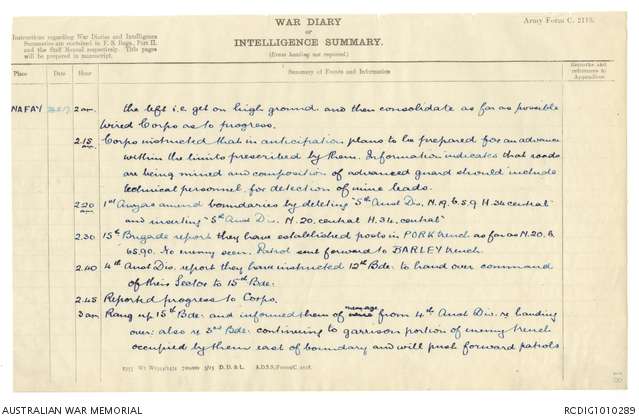 WAR DIARY
or
INTELLIGENCE SUMMARY.
(Erase heading not required.)
Army Form C. 2118.
Instructions regarding War Diaries and Intelligence
Summaries are contained in F. S. Regs., Part II.
and the Staff Manual respectively. Title pages
will be prepared in manuscript.
Place Date Hour Summary of Events and Information Remarks and references to Appendices
NAFAY 2 am. the left i.e. get on high ground and then consolidate as far as possible
Wired Corps as to progress.
2.15 am Corps instructed that in anticipation plans to be prepared for an advance
within the limits prescribed by them. Information indicates that roads
are being mined and composition of advanced guard should include
technical personnel for detection of mine leads.
2.20 am 1st Anzac amend boundaries by deleting "5th Aust Div. N.19.b.5.9 H.34 central"
and inserting "5th Aust Div. N.20. central H.34. central"
2.30 15th Brigade report they have established posts in PORK trench as far as N.20.b
65.90. No enemy seen. Patrol sent forward to BARLEY trench.
2.40 4th Aust Div. report they have instructed 12th Bde: to hand over command
of their Sector to 15th Bde:
2.45 Reported progress to Corps.
3 am Rang up 15th Bde: and informed them of message from 4th Aust Div. re handing
over: also re 3rd Bde: continuing to garrison portion of enemy trench
occupied by them east of boundary and will push forward patrols
D. D. & L. A.D.S.S./Forms/C. 2118.
AUSTRALIAN WAR MEMORIAL
RCDIG1010289